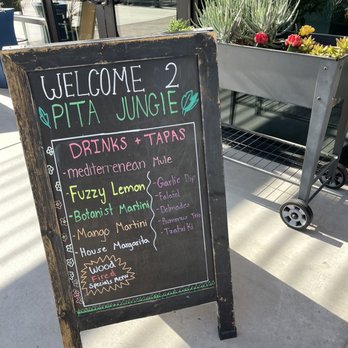 WELCOME 2
PITA JUNGlE
DRINKS + TAPAS
-mediterranean Mule
-Fuzzy Lemon
-Botanist Martini
-Mango Martini
-House Margarita
-Garlic Dip
-Falafel
-Dolmades
-Hummus Trio
-Tzatziki
Wood
Fired
Specials Menu